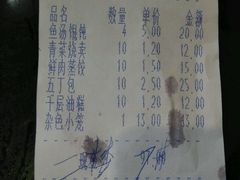 品名 数量 单价 金额
鱼汤馄饨 4 5.00 20.00
青菜烧卖 10 1.20 12.00
鲜肉蒸饺 10 1.50 15.00
五丁包 10 2.50 25.00
千层油糕 10 1.20 12.00
杂色小笼 1 13.00 13.00